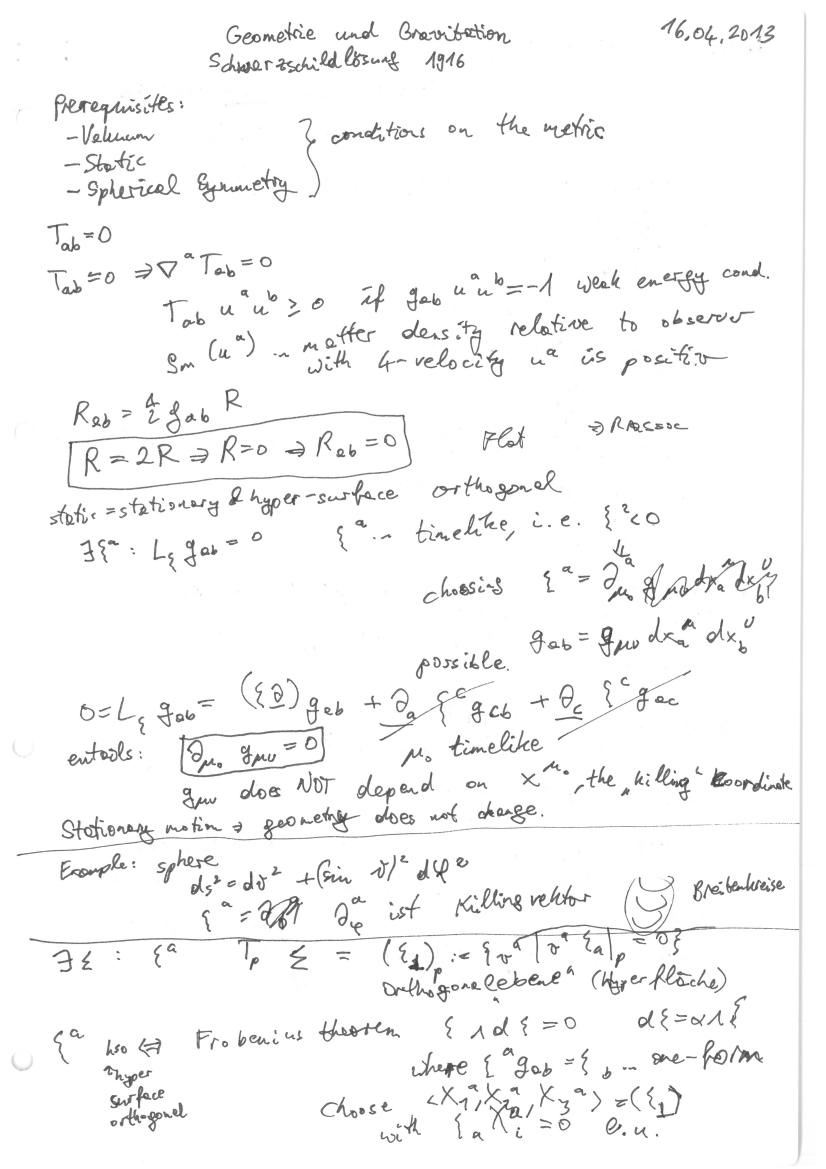 Geometrie und Gravitation 16.04.2013
Schwarzschildlösung 1916
Prerequisites:
- Vakuum
- Static } conditions on the metric
- Spherical Symmetry
T_ab = 0
T_ab ≠ 0 ⇒ ∇^a T_ab = 0
T_ab u^a u^b ≥ 0 if g_ab u^a u^b = -1 weak energy cond.
ρ_m (u^a) ... matter density relative to observer
with 4-velocity u^a is positiv
R_ab = 1/2 g_ab R
R = 2R ⇒ R=0 ⇒ R_ab = 0 Flat ⇒
static = stationary & hyper-surface orthogonal
∃ξ^a : L_ξ g_ab = 0 ξ^a ... timelike, i.e. ξ² < 0
⇓
choosing ξ^a = ∂^a_μ₀
g_ab = g_μν dx_a^μ dx_b^ν
possible.
0 = L_ξ g_ab = (ξ∂) g_ab + ∂_a ξ^c g_cb + ∂_c ξ^c g_ac
entails: ∂_μ₀ g_μν = 0 μ₀ timelike
g_μν does NOT depend on x^μ₀, the „killing“ coordinate
Stationary motion ⇒ geometry does not change.
Example: sphere
ds² = dϑ² + (sin ϑ)² dφ²
ξ^a = ∂^a_φ ist Killingvektor Breitenkreise
∃Σ : ξ^a T_p Σ = (ξ_⊥)_p := {v^a | v^a ξ_a|_p = 0}
"Orthogonalebene" (Hyperfläche)
ξ^a hso ⇔ Frobenius theorem ξ ∧ dξ = 0 dξ = α ∧ ξ
↑hyper where ξ^a g_ab = ξ_b ... one-form
surface
orthogonal choose <X_1^a, X_2^a, X_3^a> = (ξ_⊥)
with ξ_a X_i^a = 0 l.u.